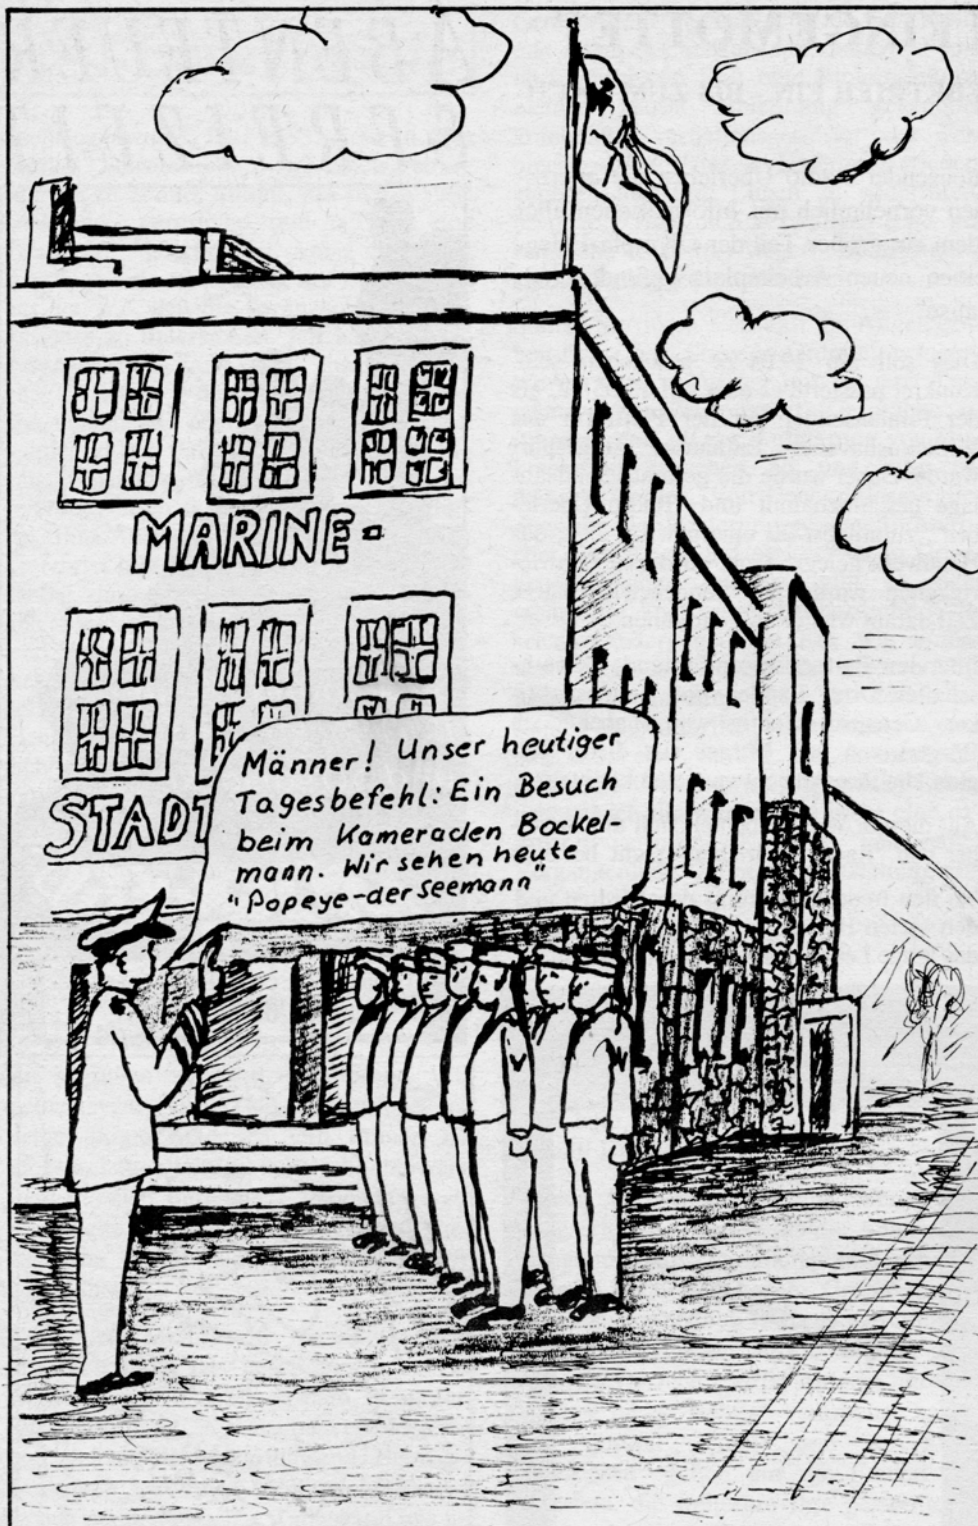 MARINE-
STADT
Männer! Unser heutiger
Tagesbefehl: Ein Besuch
beim Kameraden Bockel-
mann. Wir sehen heute
"Popeye-der Seemann"